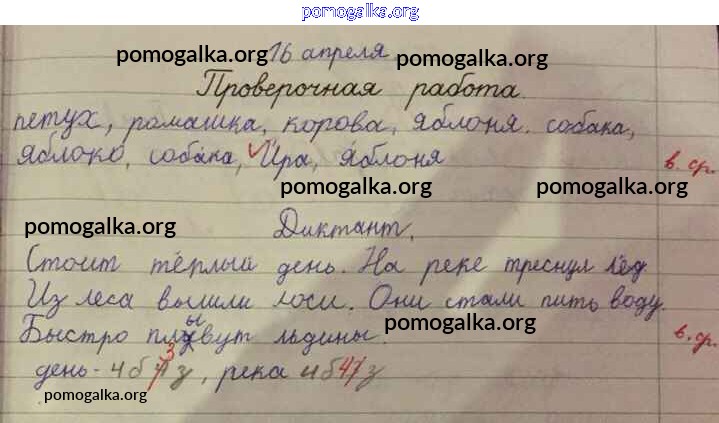 pomogalka.org
16 апреля.
pomogalka.org pomogalka.org
Проверочная работа.
петух, ромашка, корова, яблоня. собака,
яблоко, собака, Ира, яблоня
в. ср.
pomogalka.org pomogalka.org
pomogalka.org
Диктант.
Стоит тёрлый день. На реке треснул лёд
Из леса вышли лоси. Они стали пить воду.
pomogalka.org
Быстро плывут льдины.
в. ср.
день - 4б 3 з, река 4б 4 з
pomogalka.org